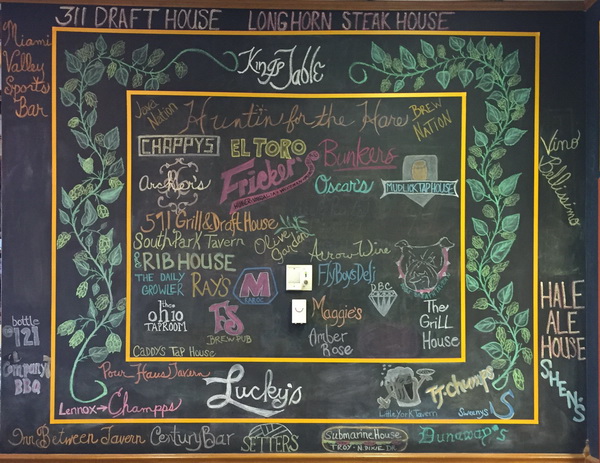 311 DRAFT HOUSE LONGHORN STEAK HOUSE
Miami
Valley
Sports
Bar
Kings Table
Huntin for the Hare
BREW
NATION
CHAPPYS
EL TORO
Bunkers
Fricker's
Archer's
Oscar's
MUDLICK TAP HOUSE
Vino
Bellissimo
5711 Grill & Draft House
Olive
Garden
South Park Tavern
& RIB HOUSE
Arrow Wine
FlyBoys Deli
THE DAILY
GROWLER
RAYS
M
DBC
the
ohio
TAPROOM
BREW PUB
Maggie's
Amber
Rose
The
Grill
House
Caddy's Tap House
HALE
ALE
HOUSE
SHEN'S
bottle
121
Company 7
BBQ
Pour Haus Tavern
Lennox → Champps
Lucky's
TJ Chumps
Little York Tavern
Sweeneys
Inn Between Tavern
Century Bar
SETTERS
Submarine House
TROY - N. DIXIE DR.
Dunaway's